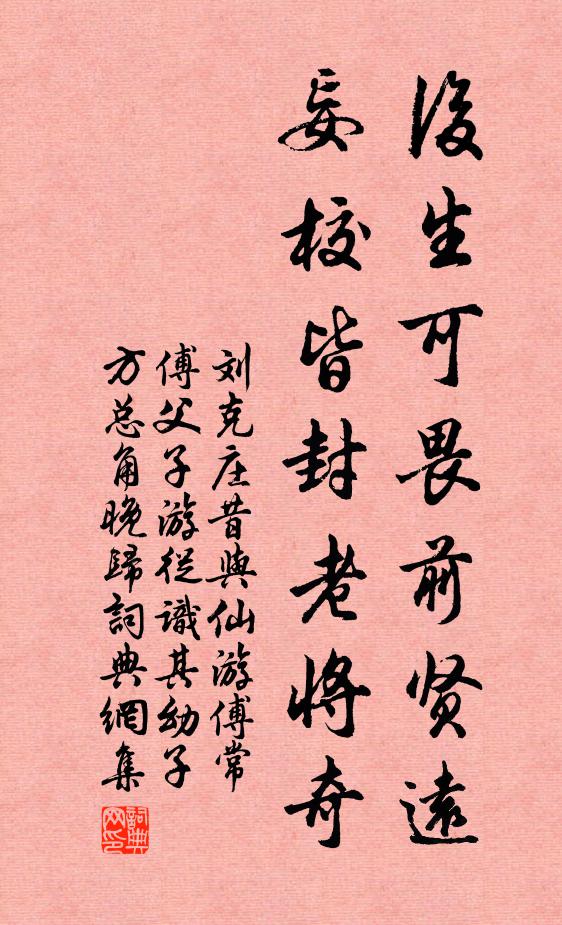 後生可畏前贤遠
妄校皆封老將奇
刘克庄昔與仙游傅常
傅父子游從識其幼子
方总角晚歸詞典網集
詞典网印